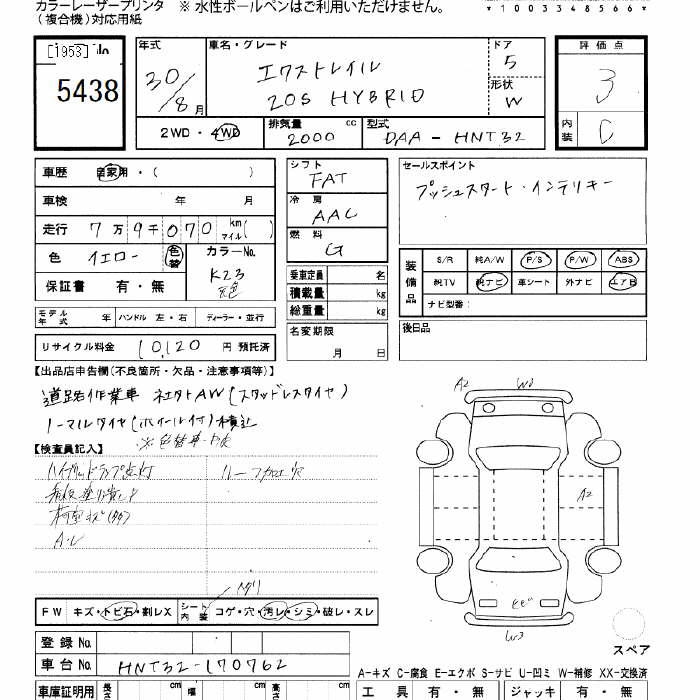 カラーレーザープリンタ ※ 水性ボールペンはご利用いただけません。
(複合機)対応用紙
*1003348566*
[1953] No
5438
年式 30/8月
車名・グレード
エクストレイル
20S HYBRID
ドア 5
形状 W
評価点 3
内装 C
2WD・4WD
排気量 2000 cc
型式 DAA-HNT32
車歴 自家用・( )
車検 年 月
走行 7万9千070 km マイル( )
色 イエロー 色替 カラーNo. K23
保証書 有・無
シフト FAT
冷房 AAC
燃料 G
乗車定員 名
積載量 kg
総重量 kg
セールスポイント
プッシュスタート・インテリキー
装備品
S/R 純A/W P/S P/W ABS
純TV 純ナビ 車シート 外ナビ エアB
ナビ型番:
モデル年式 年 ハンドル 左・右 ディーラー・並行
名変期限 月 日
後日品
リサイクル料金 10,120 円 預託済
【出品店申告欄(不良箇所・欠品・注意事項等)】
道路作業車 社外AW(スタッドレスタイヤ)
ノーマルタイヤ(ホイール付)積込
【検査員記入】
ルーフ加工穴
A2 W2
A2
W3
FW キズ・トビ石・割レX シート内装 コゲ・穴・汚レ・シミ・破レ・スレ
スペア
登録 No.
車台 No. HNT32-170762
A-キズ C-腐食 E-エクボ S-サビ U-凹ミ W-補修 XX-交換済
車庫証明用 長さ cm 幅 cm 高さ cm
工具 有・無 ジャッキ 有・無